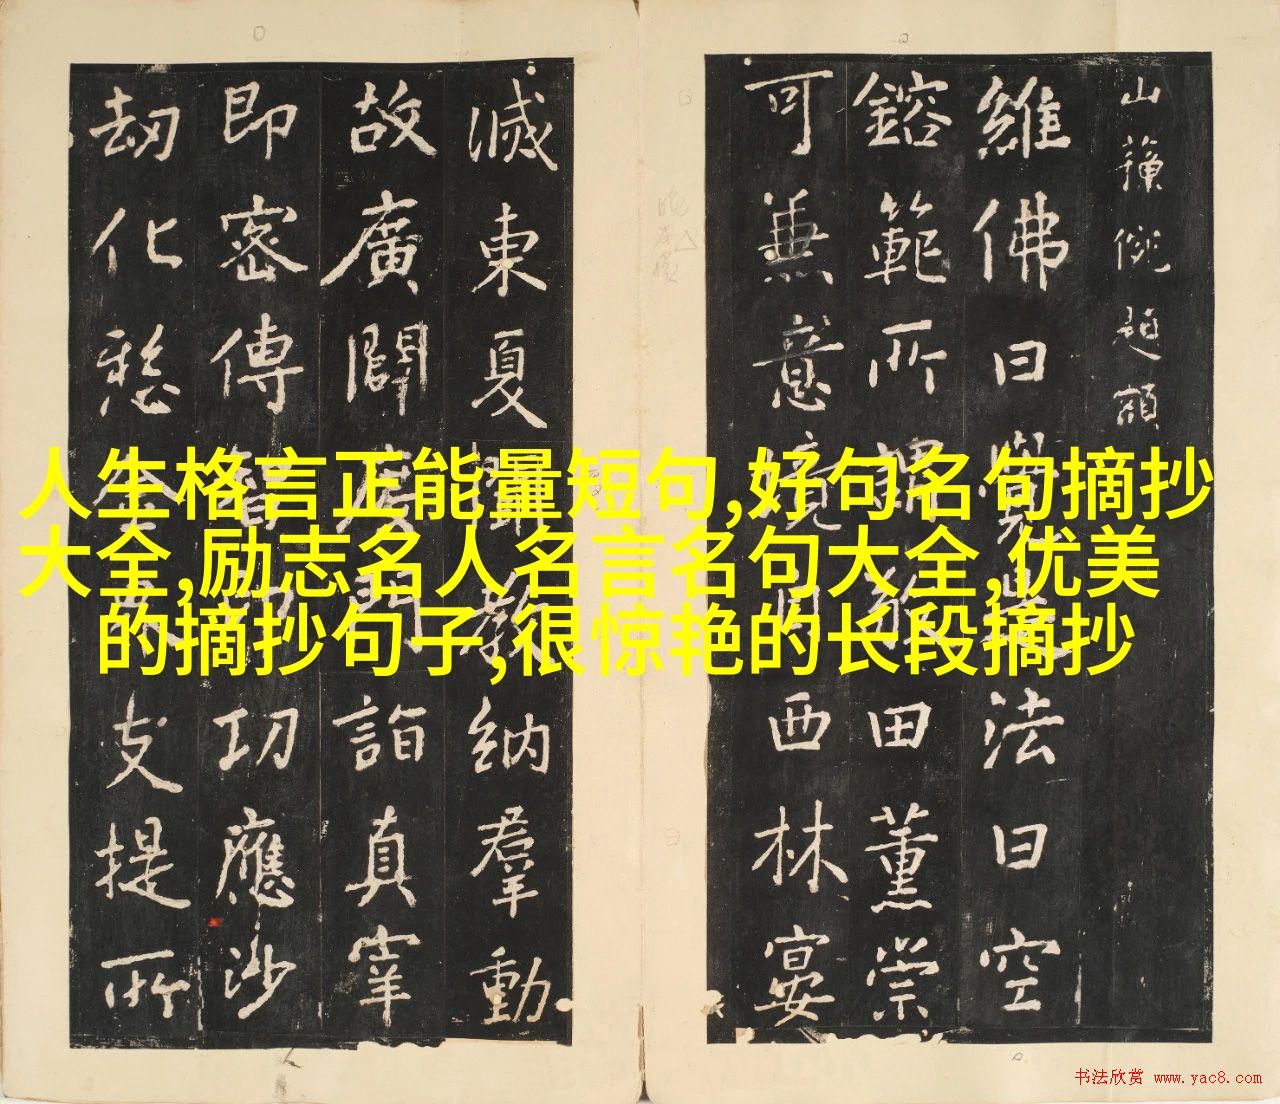 山蘓倓題額
維佛曰
法曰空
鎔範所謂
田薰崇
可兼意境
西林宴
滅東夏
納羣動
故廣闢度門
詣真宰
即密傳
功應沙
劫化愁
支提所
人生格言正能量短句,好句名句摘抄
大全,励志名人名言名句大全,优美
的摘抄句子,很惊艳的长段摘抄
书法欣赏 www.yac8.com